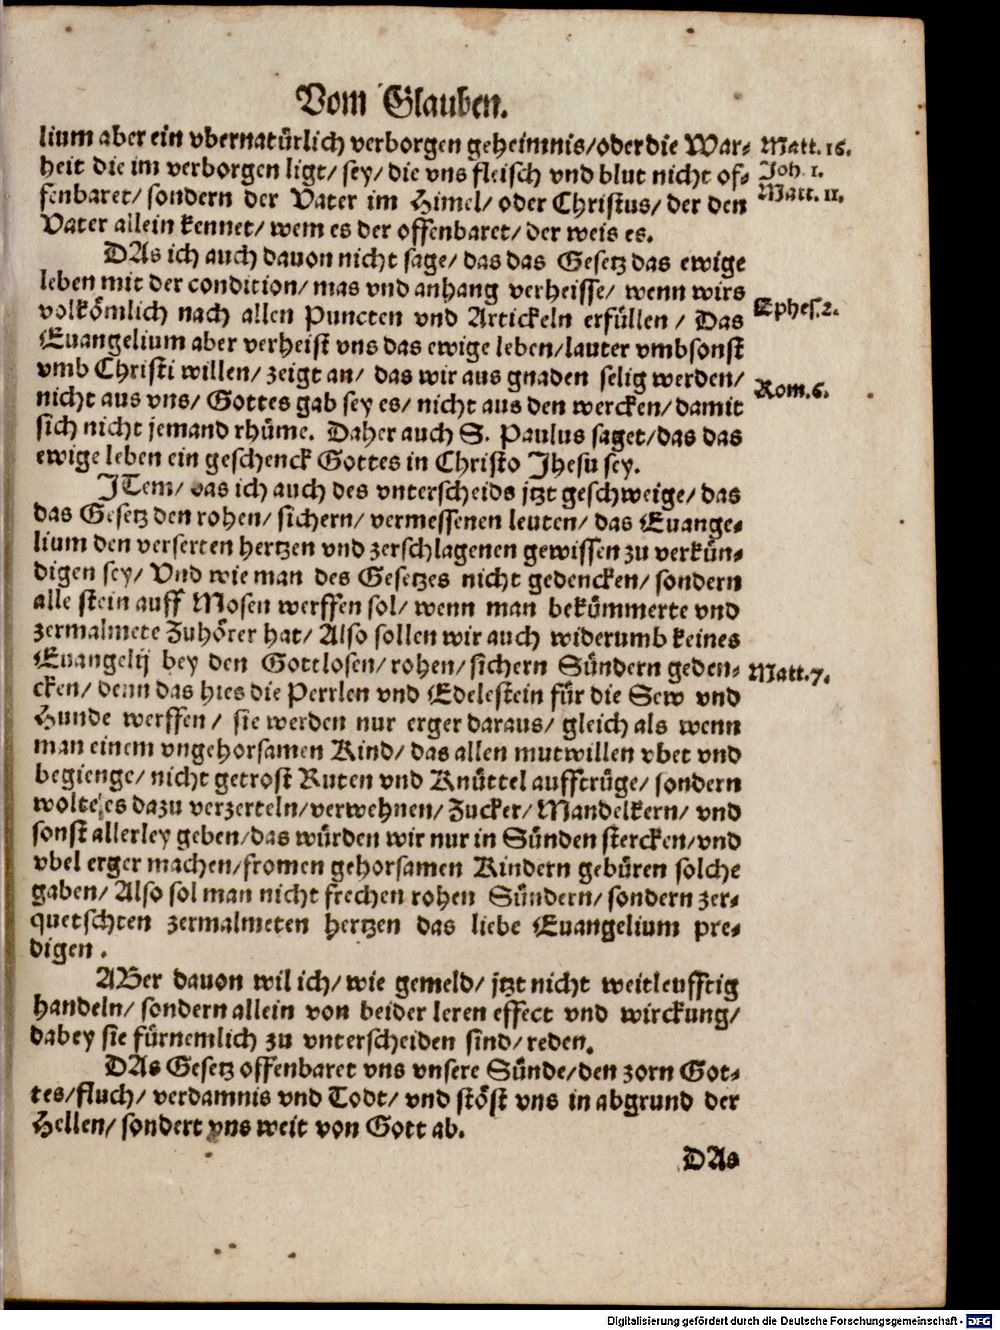 Vom Glauben.
lium aber ein vbernatürlich verborgen geheimnis/oder die War-
heit die im verborgen ligt/ sey/ die vns fleisch vnd blut nicht of-
fenbaret/ sondern der Vater im Himel/ oder Christus/ der den
Vater allein kennet/ wem es der offenbaret/ der weis es.
Matt. 16.
Joh. 1.
Matt. 11.
DAs ich auch dauon nicht sage/ das das Gesetz das ewige
leben mit der condition/ mas vnd anhang verheisse/ wenn wirs
volkömlich nach allen Puncten vnd Artickeln erfüllen / Das
Euangelium aber verheist vns das ewige leben/lauter vmbsonst
vmb Christi willen/ zeigt an/ das wir aus gnaden selig werden/
nicht aus vns/ Gottes gab sey es/ nicht aus den wercken/ damit
sich nicht jemand rhüme. Daher auch S. Paulus saget/das das
ewige leben ein geschenck Gottes in Christo Jhesu sey.
Ephes. 2.
Rom. 6.
JTem/ das ich auch des vnterscheids jtzt geschweige/ das
das Gesetz den rohen/ sichern/ vermessenen leuten/ das Euange-
lium den verserten hertzen vnd zerschlagenen gewissen zu verkün-
digen sey/ Vnd wie man des Gesetzes nicht gedencken/ sondern
alle stein auff Mosen werffen sol/ wenn man bekümmerte vnd
zermalmete Zuhörer hat/ Also sollen wir auch widerumb keines
Euangelij bey den Gottlosen/ rohen/ sichern Sündern geden-
cken/ denn das hies die Perrlen vnd Edelestein für die Sew vnd
Hunde werffen / sie werden nur erger daraus/ gleich als wenn
man einem vngehorsamen Kind/ das allen mutwillen vbet vnd
begienge/ nicht getrost Ruten vnd Knüttel aufftrüge/ sondern
wolte es dazu verzerteln/verwehnen/ Zucker/ Mandelkern/ vnd
sonst allerley geben/das würden wir nur in Sünden stercken/vnd
vbel erger machen/fromen gehorsamen Kindern gebüren solche
gaben/ Also sol man nicht frechen rohen Sündern/ sondern zer-
quetschten zermalmeten hertzen das liebe Euangelium pre-
digen.
Matt. 7.
ABer dauon wil ich/ wie gemeld/ jtzt nicht weitleufftig
handeln/ sondern allein von beider leren effect vnd wirckung/
dabey sie fürnemlich zu vnterscheiden sind/ reden.
DAs Gesetz offenbaret vns vnsere Sünde/den zorn Got-
tes/fluch/ verdamnis vnd Todt/ vnd stöst vns in abgrund der
Hellen/ sondert vns weit von Gott ab.
DAs
Digitalisierung gefördert durch die Deutsche Forschungsgemeinschaft - DFG